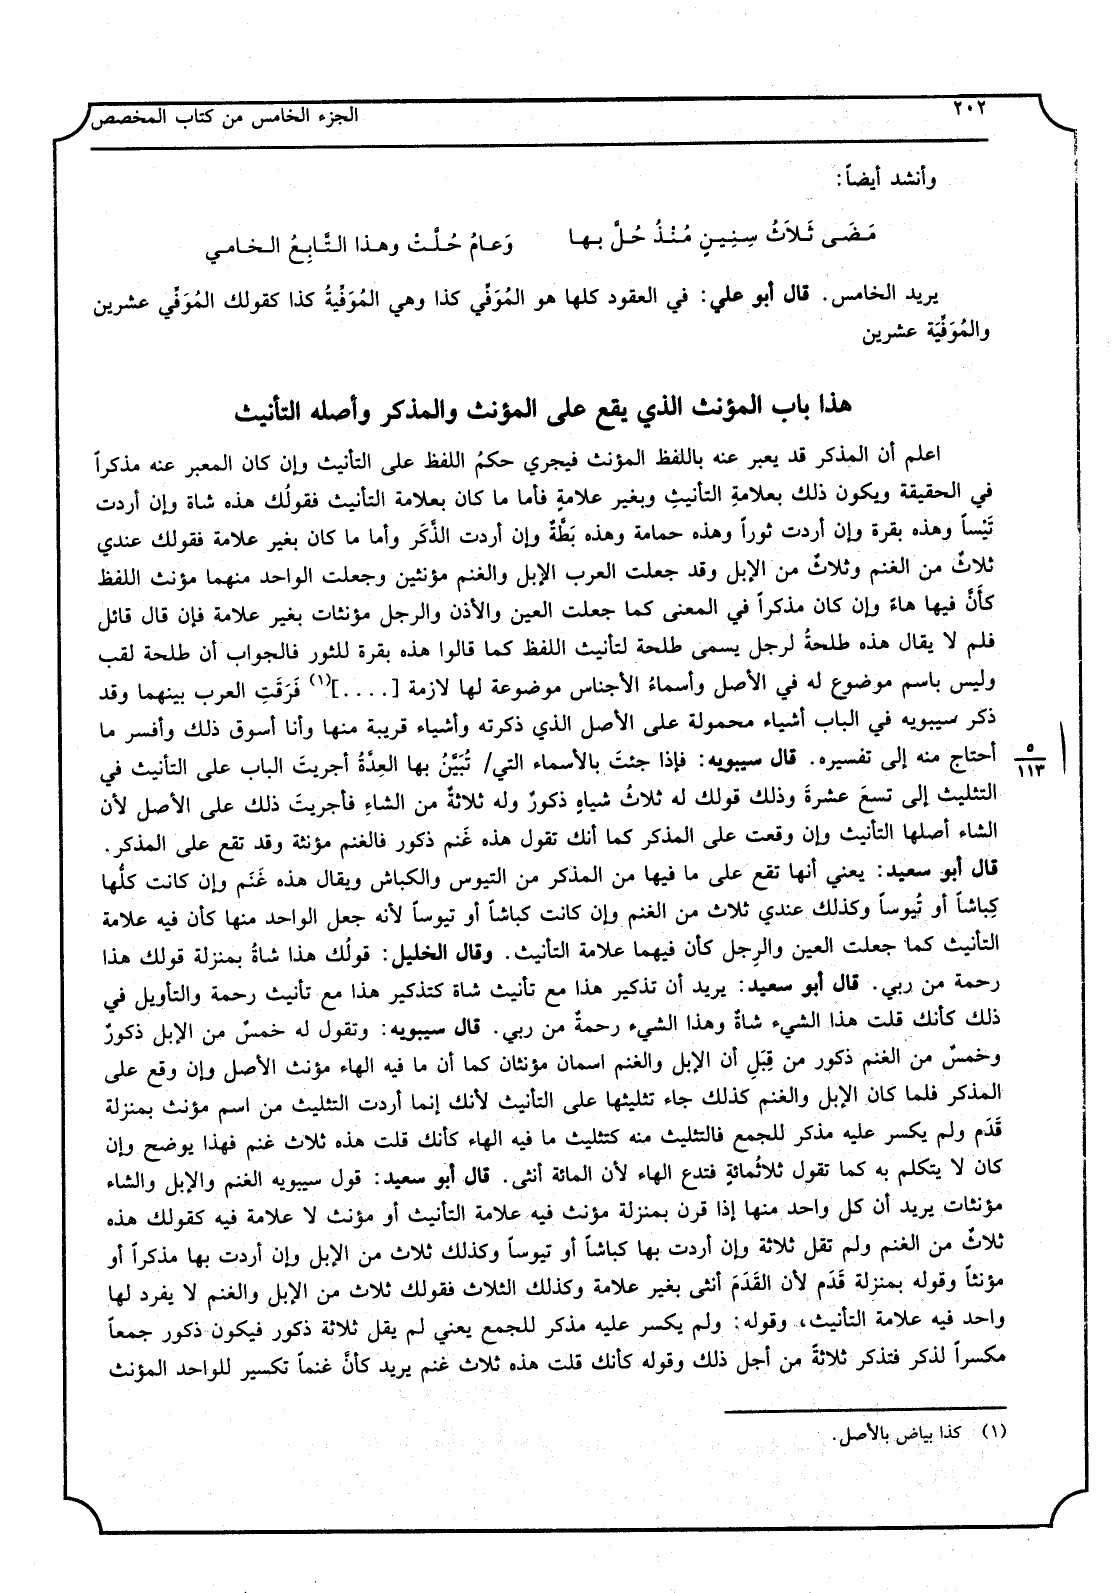 ٢٠٢ الجزء الخامس من كتاب المخصص
وأنشد أيضاً:
مَضَى ثَلاَثُ سِنِينٍ مُنْذُ حُلَّ بها وَعامُ حُلَّتْ وهذا التَّابِعُ الخامي
يريد الخامس. قال أبو علي: في العقود كلها هو المُوَفِّي كذا وهي المُوَفِّيةُ كذا كقولك المُوَفِّي عشرين
والمُوَفِّيَة عشرين
هذا باب المؤنث الذي يقع على المؤنث والمذكر وأصله التأنيث
اعلم أن المذكر قد يعبر عنه باللفظ المؤنث فيجري حكمُ اللفظ على التأنيث وإن كان المعبر عنه مذكراً
في الحقيقة ويكون ذلك بعلامةِ التأنيثِ وبغير علامةٍ فأما ما كان بعلامة التأنيث فقولُك هذه شاة وإن أردت
تَيْساً وهذه بقرة وإن أردت ثوراً وهذه حمامة وهذه بَطَّةٌ وإن أردت الذَّكَر وأما ما كان بغير علامة فقولك عندي
ثلاثٌ من الغنم وثلاثٌ من الإبل وقد جعلت العرب الإبل والغنم مؤنثين وجعلت الواحد منهما مؤنث اللفظ
كأنَّ فيها هاءً وإن كان مذكراً في المعنى كما جعلت العين والأذن والرجل مؤنثات بغير علامة فإن قال قائل
فلم لا يقال هذه طلحةُ لرجل يسمى طلحة لتأنيث اللفظ كما قالوا هذه بقرة للثور فالجواب أن طلحة لقب
وليس باسم موضوع له في الأصل وأسماءُ الأجناس موضوعة لها لازمة [....](١) فَرَقَتِ العرب بينهما وقد
ذكر سيبويه في الباب أشياء محمولة على الأصل الذي ذكرته وأشياء قريبة منها وأنا أسوق ذلك وأفسر ما
أحتاج منه إلى تفسيره. قال سيبويه: فإذا جئتَ بالأسماء التي/ تُبَيَّنُ بها العِدَّةُ أجريتَ الباب على التأنيث في
٥
١١٣
التثليث إلى تسعَ عشرةَ وذلك قولك له ثلاثُ شياهٍ ذكورٌ وله ثلاثةٌ من الشاءِ فأجريتَ ذلك على الأصل لأن
الشاء أصلها التأنيث وإن وقعت على المذكر كما أنك تقول هذه غَنم ذكور فالغنم مؤنثة وقد تقع على المذكر.
قال أبو سعيد: يعني أنها تقع على ما فيها من المذكر من التيوس والكباش ويقال هذه غَنَم وإن كانت كلُّها
كِباشاً أو تُيوساً وكذلك عندي ثلاث من الغنم وإن كانت كباشاً أو تيوساً لأنه جعل الواحد منها كأن فيه علامة
التأنيث كما جعلت العين والرِجل كأن فيهما علامة التأنيث. وقال الخليل: قولُك هذا شاةُ بمنزلة قولك هذا
رحمة من ربي. قال أبو سعيد: يريد أن تذكير هذا مع تأنيث شاة كتذكير هذا مع تأنيث رحمة والتأويل في
ذلك كأنك قلت هذا الشيء شاةٌ وهذا الشيء رحمةٌ من ربي. قال سيبويه: وتقول له خمسٌ من الإبل ذكورٌ
وخمسٌ من الغنم ذكور من قِبَلِ أن الإبل والغنم اسمان مؤنثان كما أن ما فيه الهاء مؤنث الأصل وإن وقع على
المذكر فلما كان الإبل والغنم كذلك جاء تثليثها على التأنيث لأنك إنما أردت التثليث من اسم مؤنث بمنزلة
قَدَم ولم يكسر عليه مذكر للجمع فالتثليث منه كتثليث ما فيه الهاء كأنك قلت هذه ثلاث غنم فهذا يوضح وإن
كان لا يتكلم به كما تقول ثلاثُمائةٍ فتدع الهاء لأن المائة أنثى. قال أبو سعيد: قول سيبويه الغنم والإبل والشاء
مؤنثات يريد أن كل واحد منها إذا قرن بمنزلة مؤنث فيه علامة التأنيث أو مؤنث لا علامة فيه كقولك هذه
ثلاثٌ من الغنم ولم تقل ثلاثة وإن أردت بها كباشاً أو تيوساً وكذلك ثلاث من الإبل وإن أردت بها مذكراً أو
مؤنثاً وقوله بمنزلة قَدَم لأن القَدَمَ أنثى بغير علامة وكذلك الثلاث فقولك ثلاث من الإبل والغنم لا يفرد لها
واحد فيه علامة التأنيث، وقوله: ولم يكسر عليه مذكر للجمع يعني لم يقل ثلاثة ذكور فيكون ذكور جمعاً
مكسراً لذكر فتذكر ثلاثةً من أجل ذلك وقوله كأنك قلت هذه ثلاث غنم يريد كأنَّ غنماً تكسير للواحد المؤنث
(١) كذا بياض بالأصل.